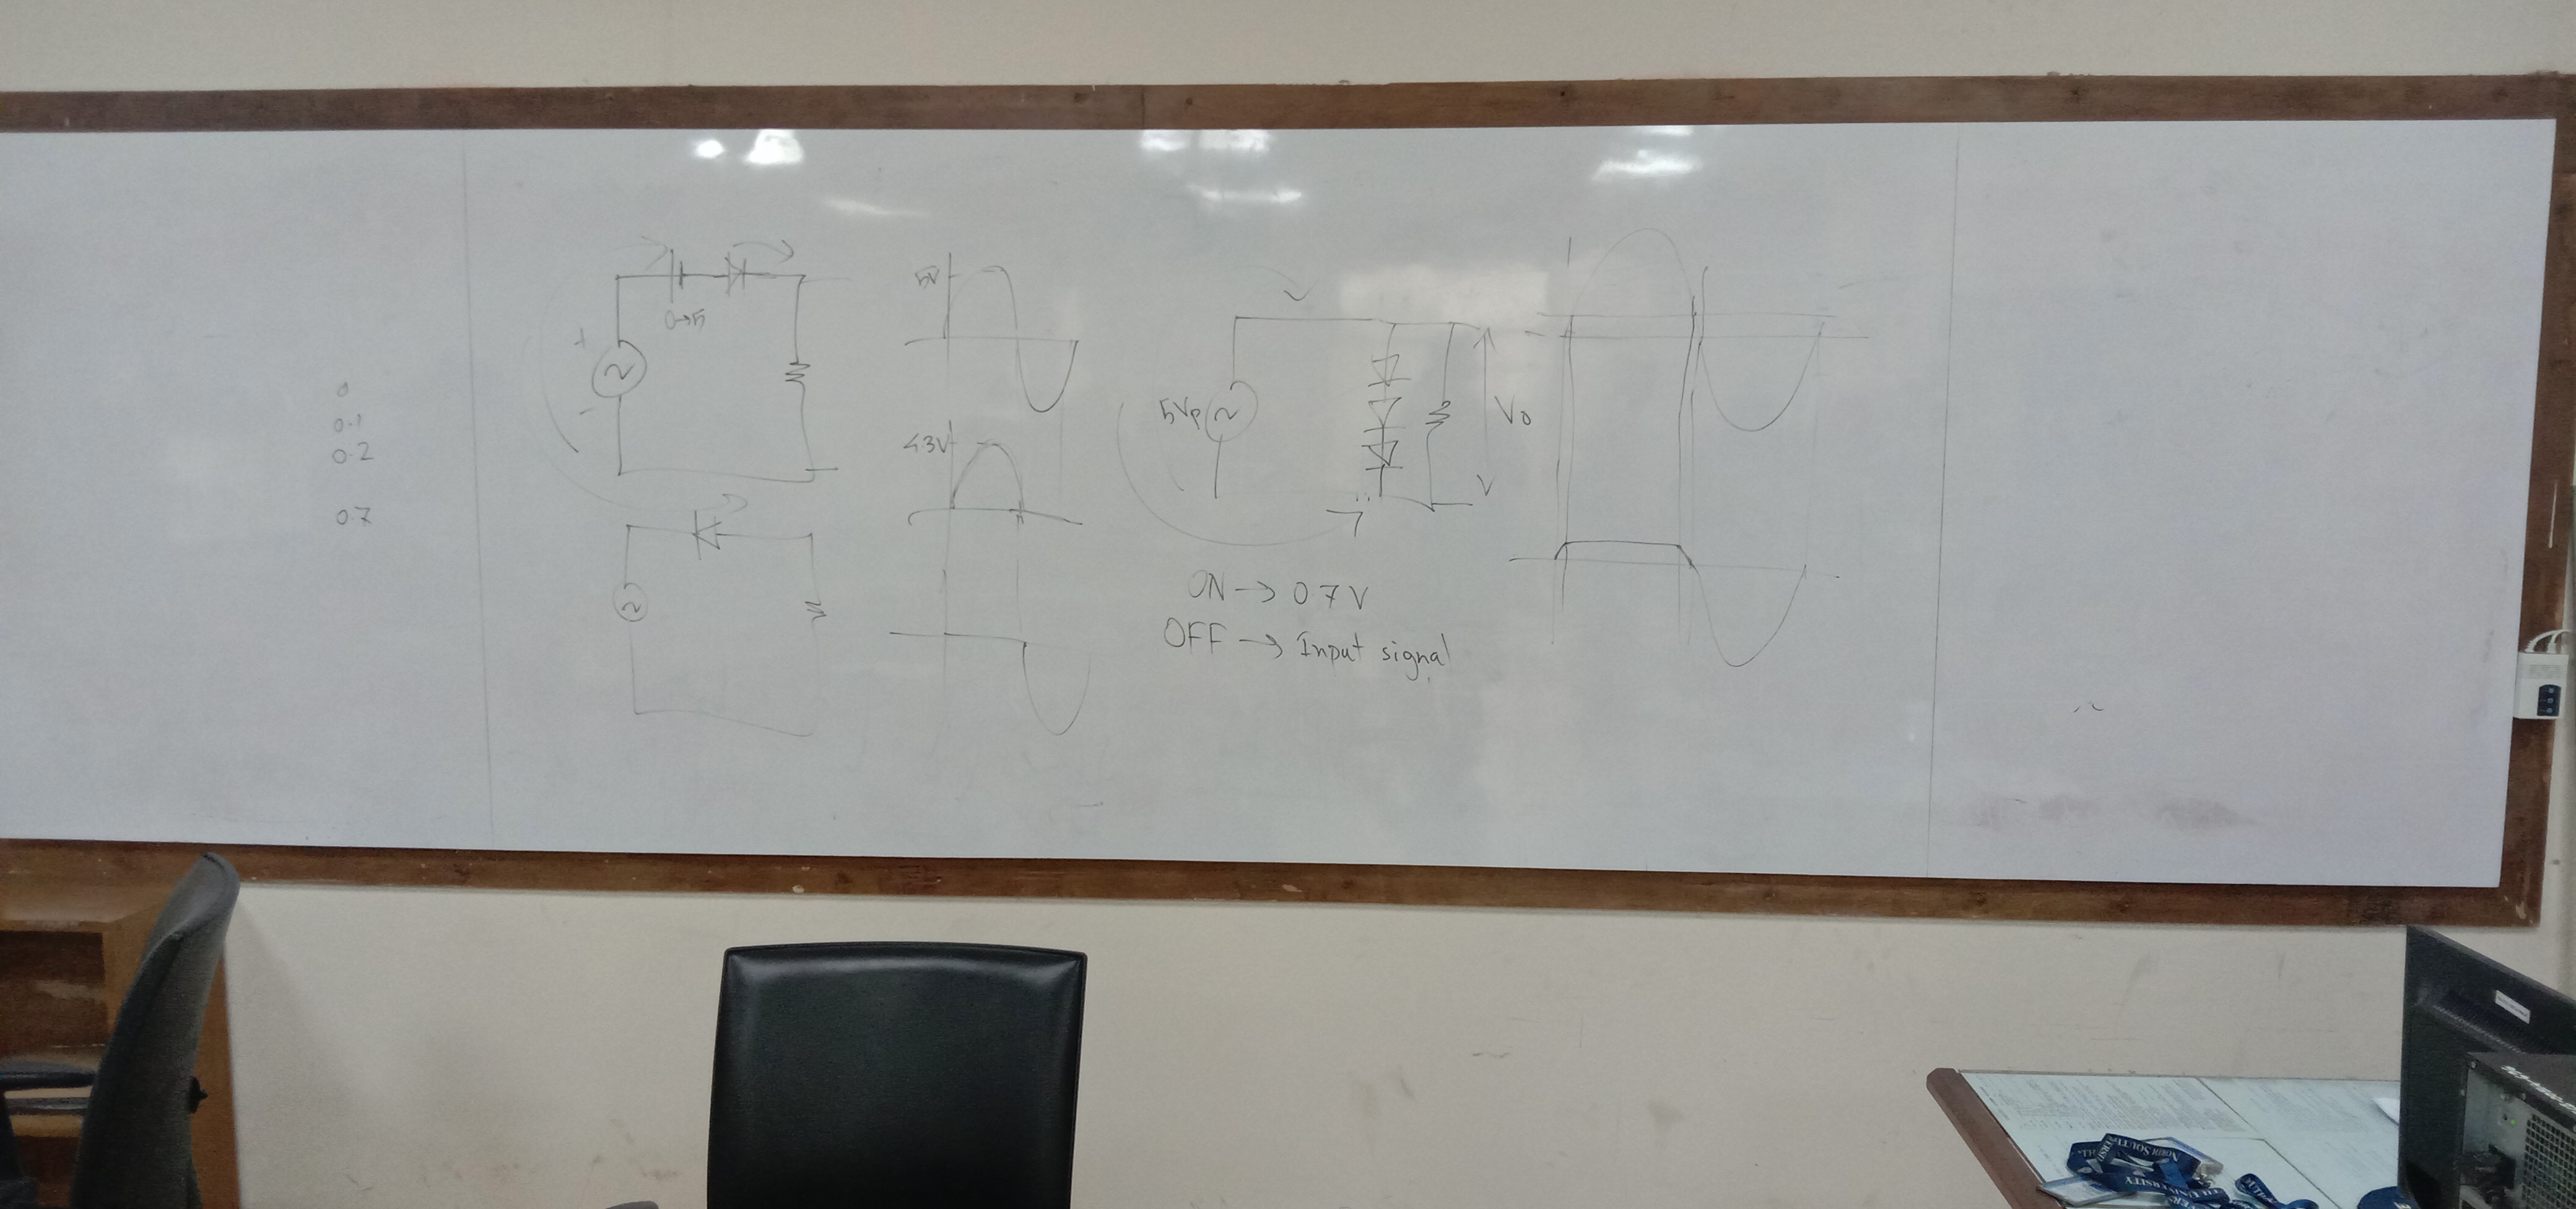 0
0.1
0.2
0.7
+
-
0→5
5V
4.3V
5Vp
Vo
ON → 0.7V
OFF → Input signal
NORTH SOUTH
UNIVERSITY